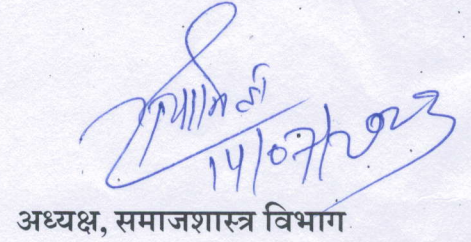 14/07/2023
अध्यक्ष, समाजशास्त्र विभाग